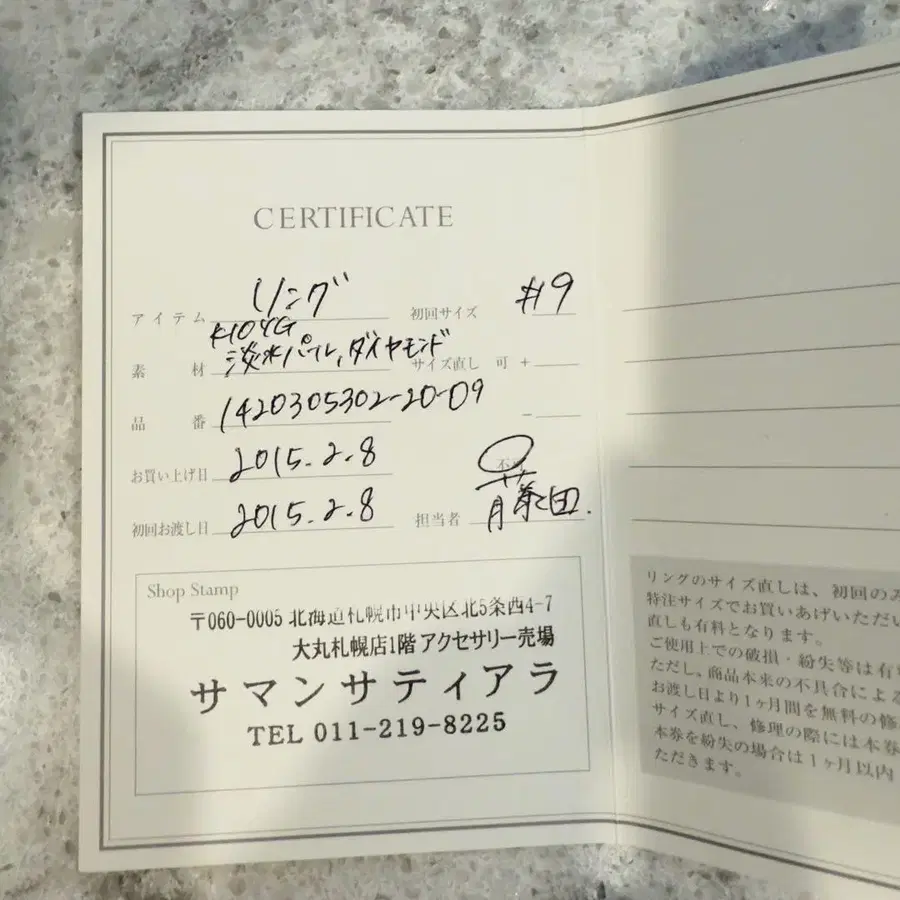 CERTIFICATE
アイテム リング 初回サイズ #9
K10YG
素材 淡水パール,ダイヤモンド サイズ直し 可 +
品番 1420305302-20-09 -
お買い上げ日 2015.2.8 不可
初回お渡し日 2015.2.8 担当者 藤田.
Shop Stamp
〒060-0005 北海道札幌市中央区北5条西4-7
大丸札幌店1階 アクセサリー売場
サマンサティアラ
TEL 011-219-8225
リングのサイズ直しは、初回のみ
特注サイズでお買いあげいただい
直しも有料となります。
ご使用上での破損・紛失等は有
ただし、商品本来の不具合による
お渡し日より1ヶ月間を無料の修
サイズ直し、修理の際には本券
本券を紛失の場合は1ヶ月以内
ただきます。